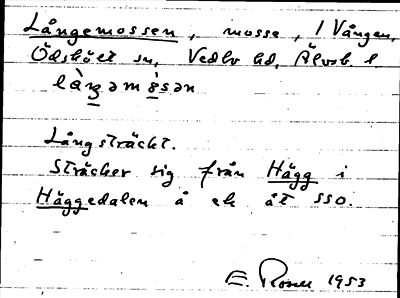 Långemossen, mosse, i Vången,
Ödskölt sn, Vedbo hd, Älvsb. l
Långsträckt.
Sträcker sig från Hägg i
Häggedalen å ek åt SSO.
E. Rosell 1953